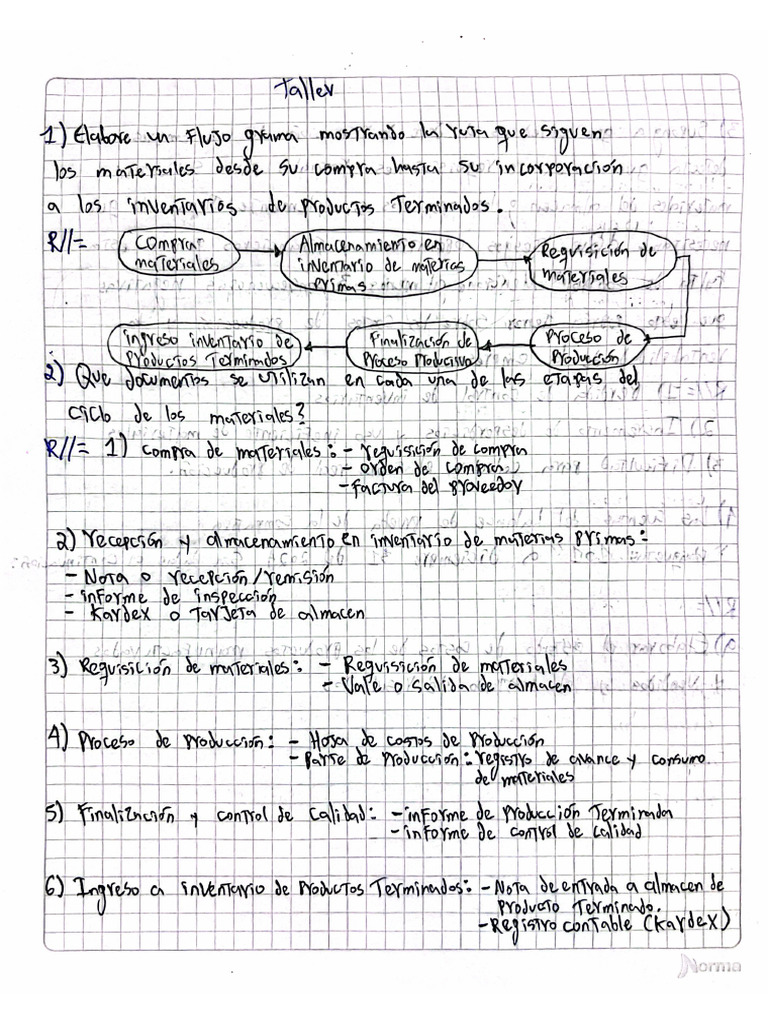 Taller
1) Elabore un Flujo grama mostrando la ruta que siguen
los materiales desde su compra hasta su incorporación
a los inventarios de productos Terminados.
R//= Comprar materiales
Almacenamiento en inventario de materias primas
Requisición de materiales
Proceso de Producción
Finalización de Proceso Productivo
Ingreso inventario de Productos Terminados
2) Que documentos se utilizan en cada una de las etapas del
ciclo de los materiales?
R//= 1) compra de materiales: - requisición de compra
- orden de compra
- factura del proveedor
2) recepción y almacenamiento en inventario de materias primas:
- Nota o recepción/remisión
- informe de inspección
- Kardex o Tarjeta de almacen
3) Requisición de materiales: - Requissición de materiales
- Vale o salida de almacen
4) Proceso de producción: - Hoja de costos de Producción
- Parte de Producción: registro de avance y consumo
de materiales
5) Finalización y control de calidad: - informe de Producción Terminada
- informe de control de calidad
6) Ingreso a inventario de Productos Terminados: - Nota de entrada a almacen de
Producto Terminado.
- Registro contable (Kardex)
Norma